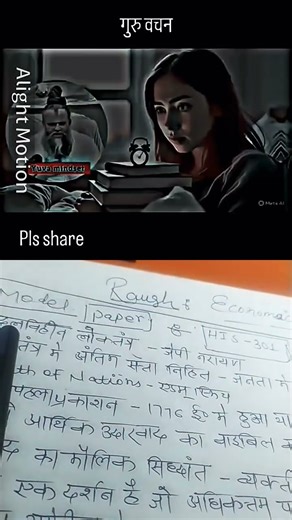 गुरु वचन
Alight Motion
Yuva mindset
Meta AI
Pls share
Rough: Economic
Model Paper HIS-301
दलविहीन लोकतंत्र - जेपी नारायण
तंत्र में अंतिम सत्ता निहित - जनता में
th of Nations - एडम स्मिथ
प्रकाशन - 1776 ई० में हुआ था
आर्थिक उदारवाद का बाइबल
का मौलिक सिद्धांत - व्यक्ती
एक दर्शन है जो अधिकतम